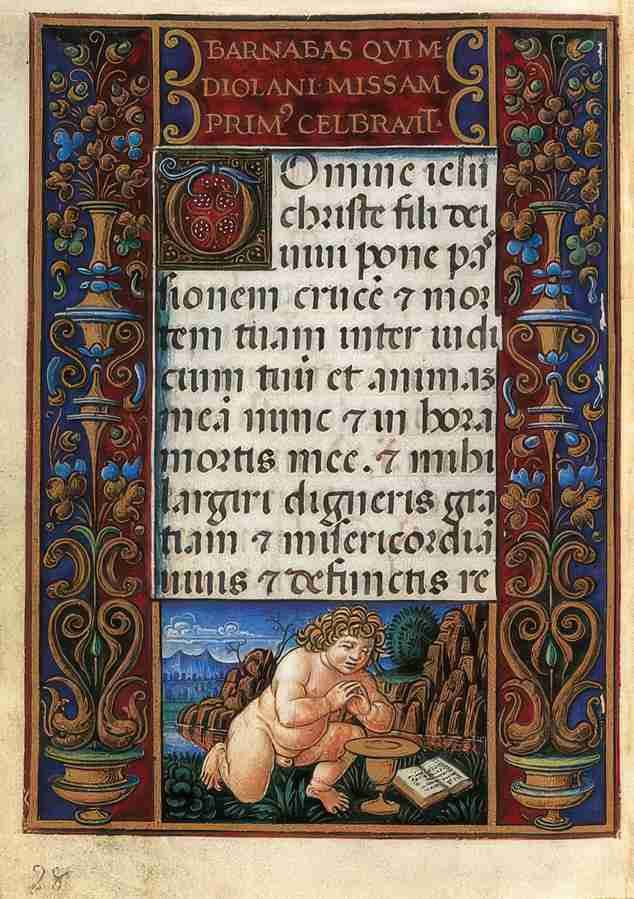 BARNABAS QVI ME
DIOLANI·MISSAM
PRIMꝰ CELBRAVIT·
DOmine iesu
christe fili dei
uiui pone paˢ
sionem crucē ⁊ mor
tem tuam inter iudi
cium tuū et animas
meā nunc ⁊ in hora
mortis mee. ⁊ mihi
largiri digneris gra
tiam ⁊ misericordiā
uiuis ⁊ defunctis re
28